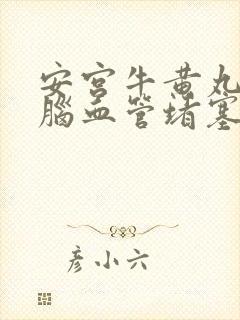 安宫牛黄丸
脑血管堵塞
彦小六